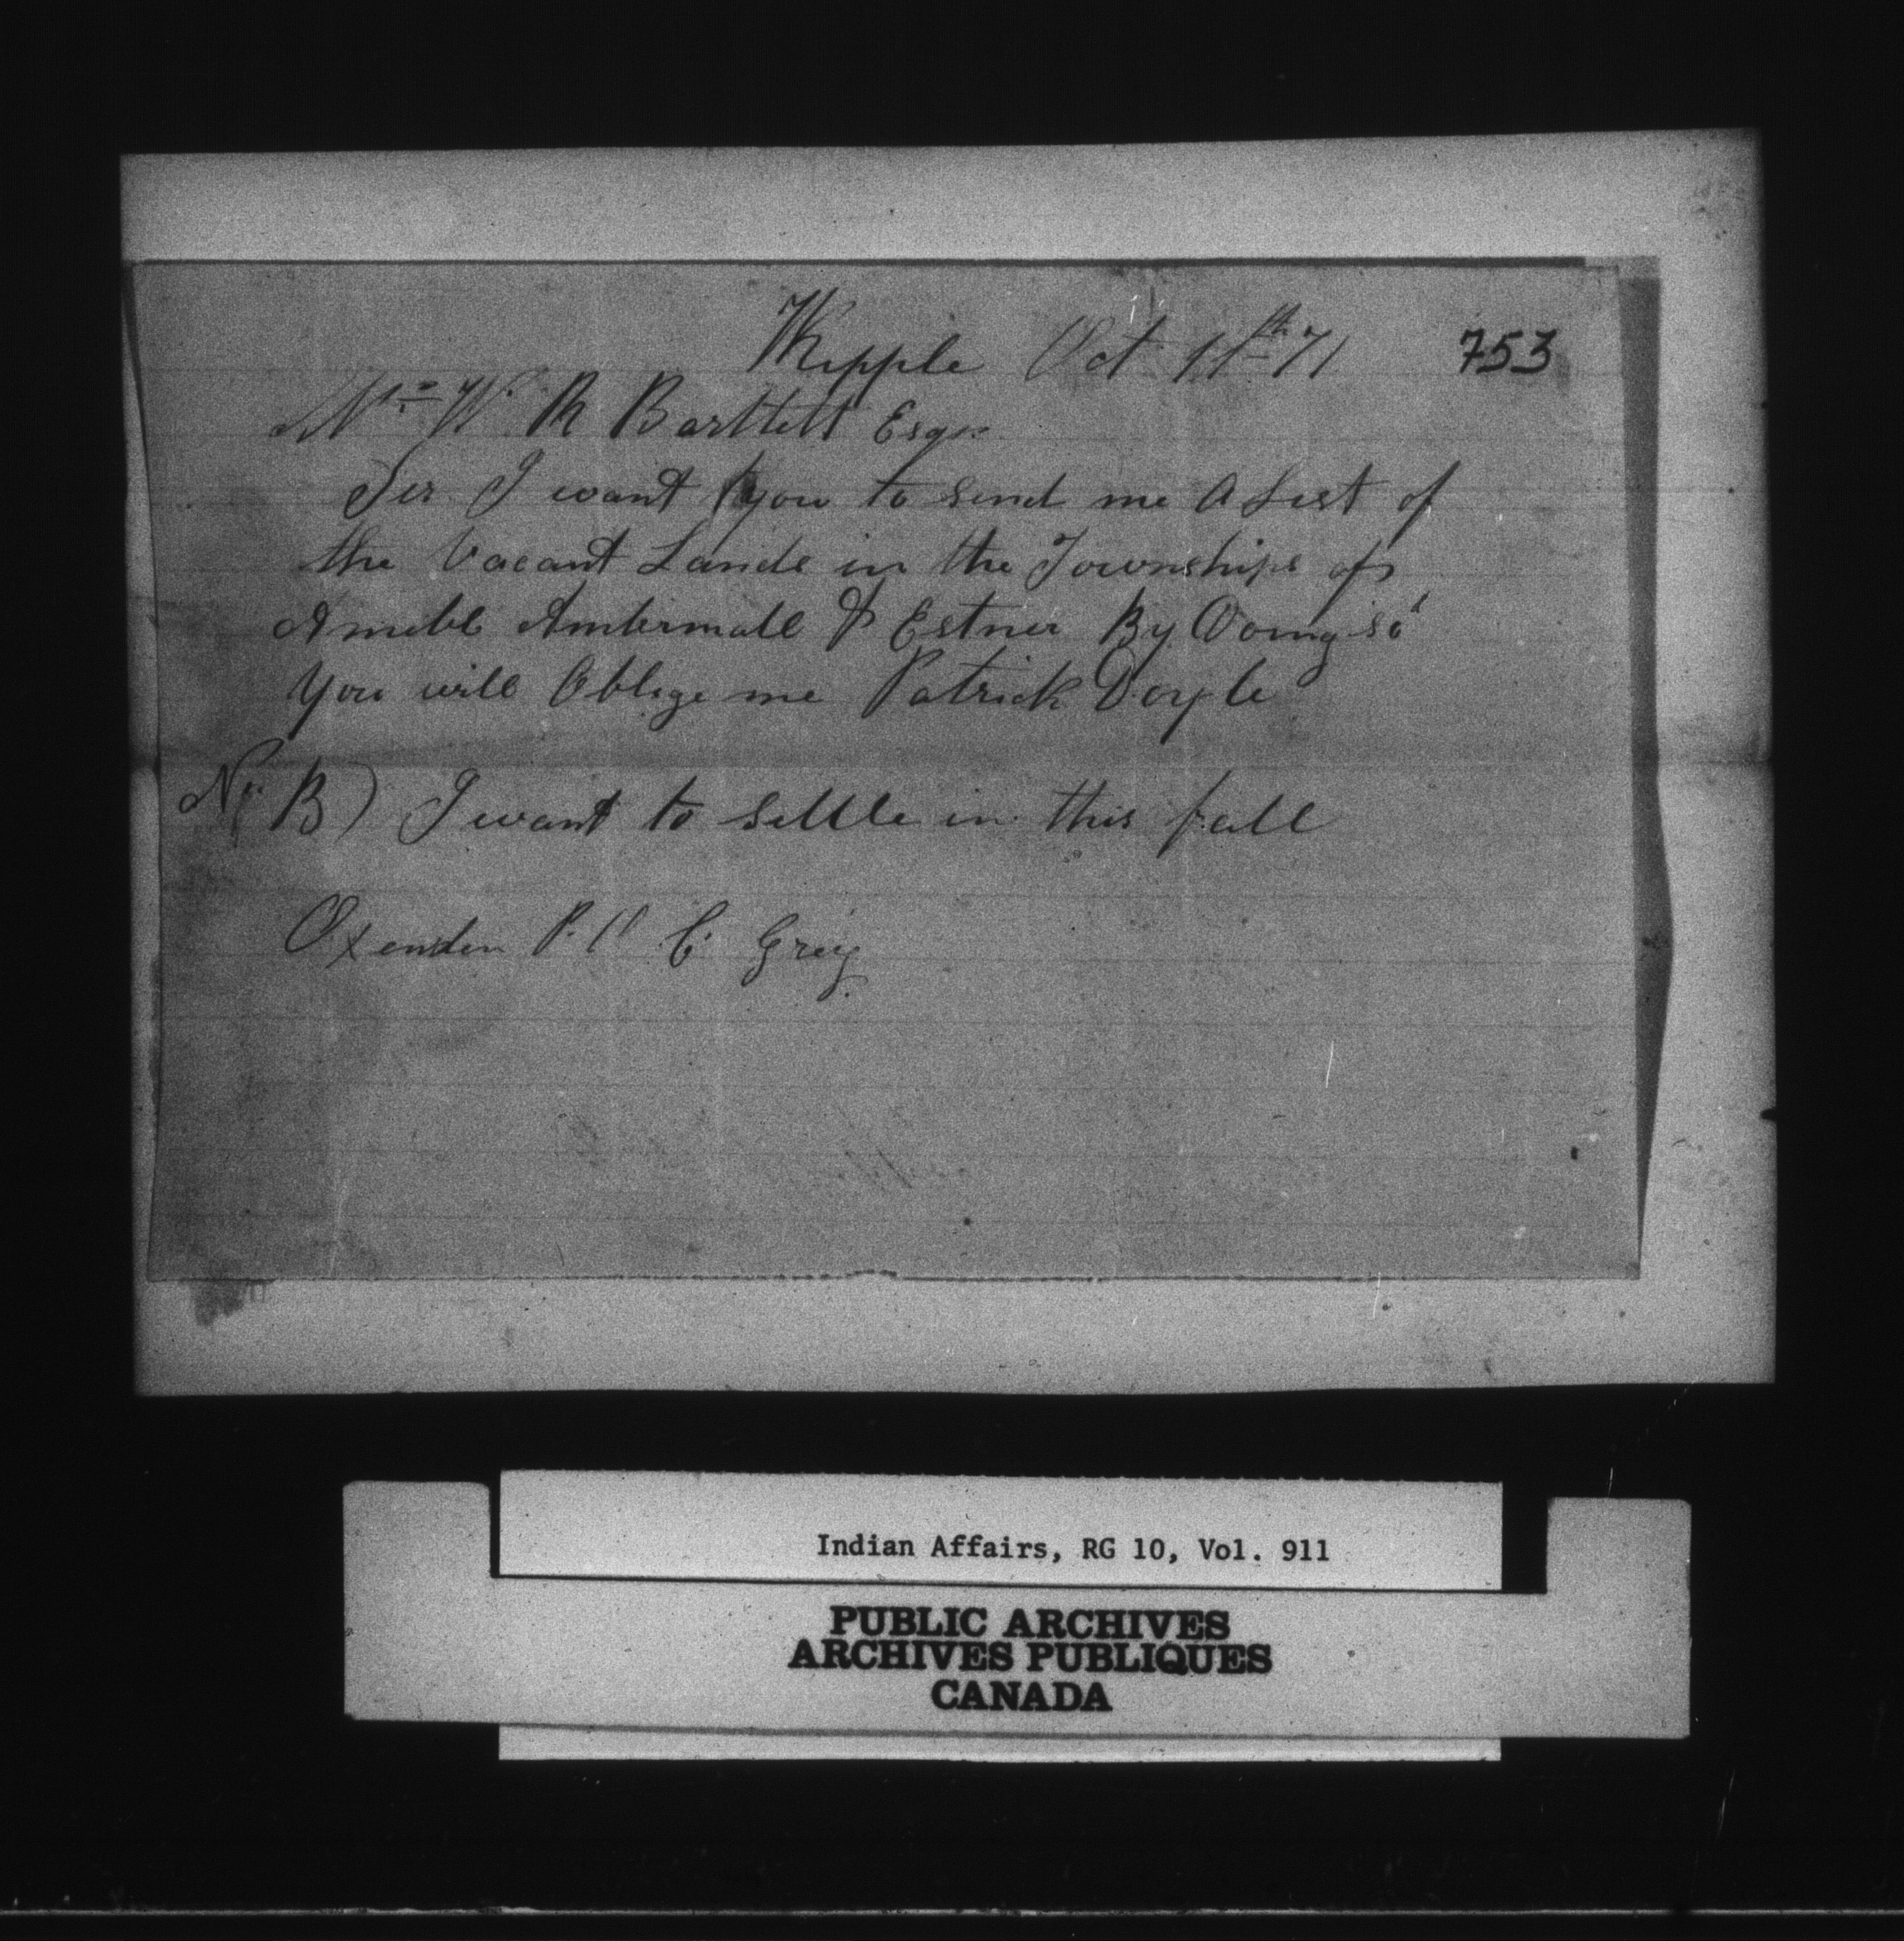 Kepple Oct 11th 71 753
Mr W R Bartlett Esqr
Sir I want you to send me A List of
the Vacant Lands in the Townships of
Amebl Ambermall & Estner By Doing so
you will Oblige me Patrick Doyle
N B) I want to settle in this fall
Oxenden P. O C. Grey
Indian Affairs, RG 10, Vol. 911
PUBLIC ARCHIVES
ARCHIVES PUBLIQUES
CANADA